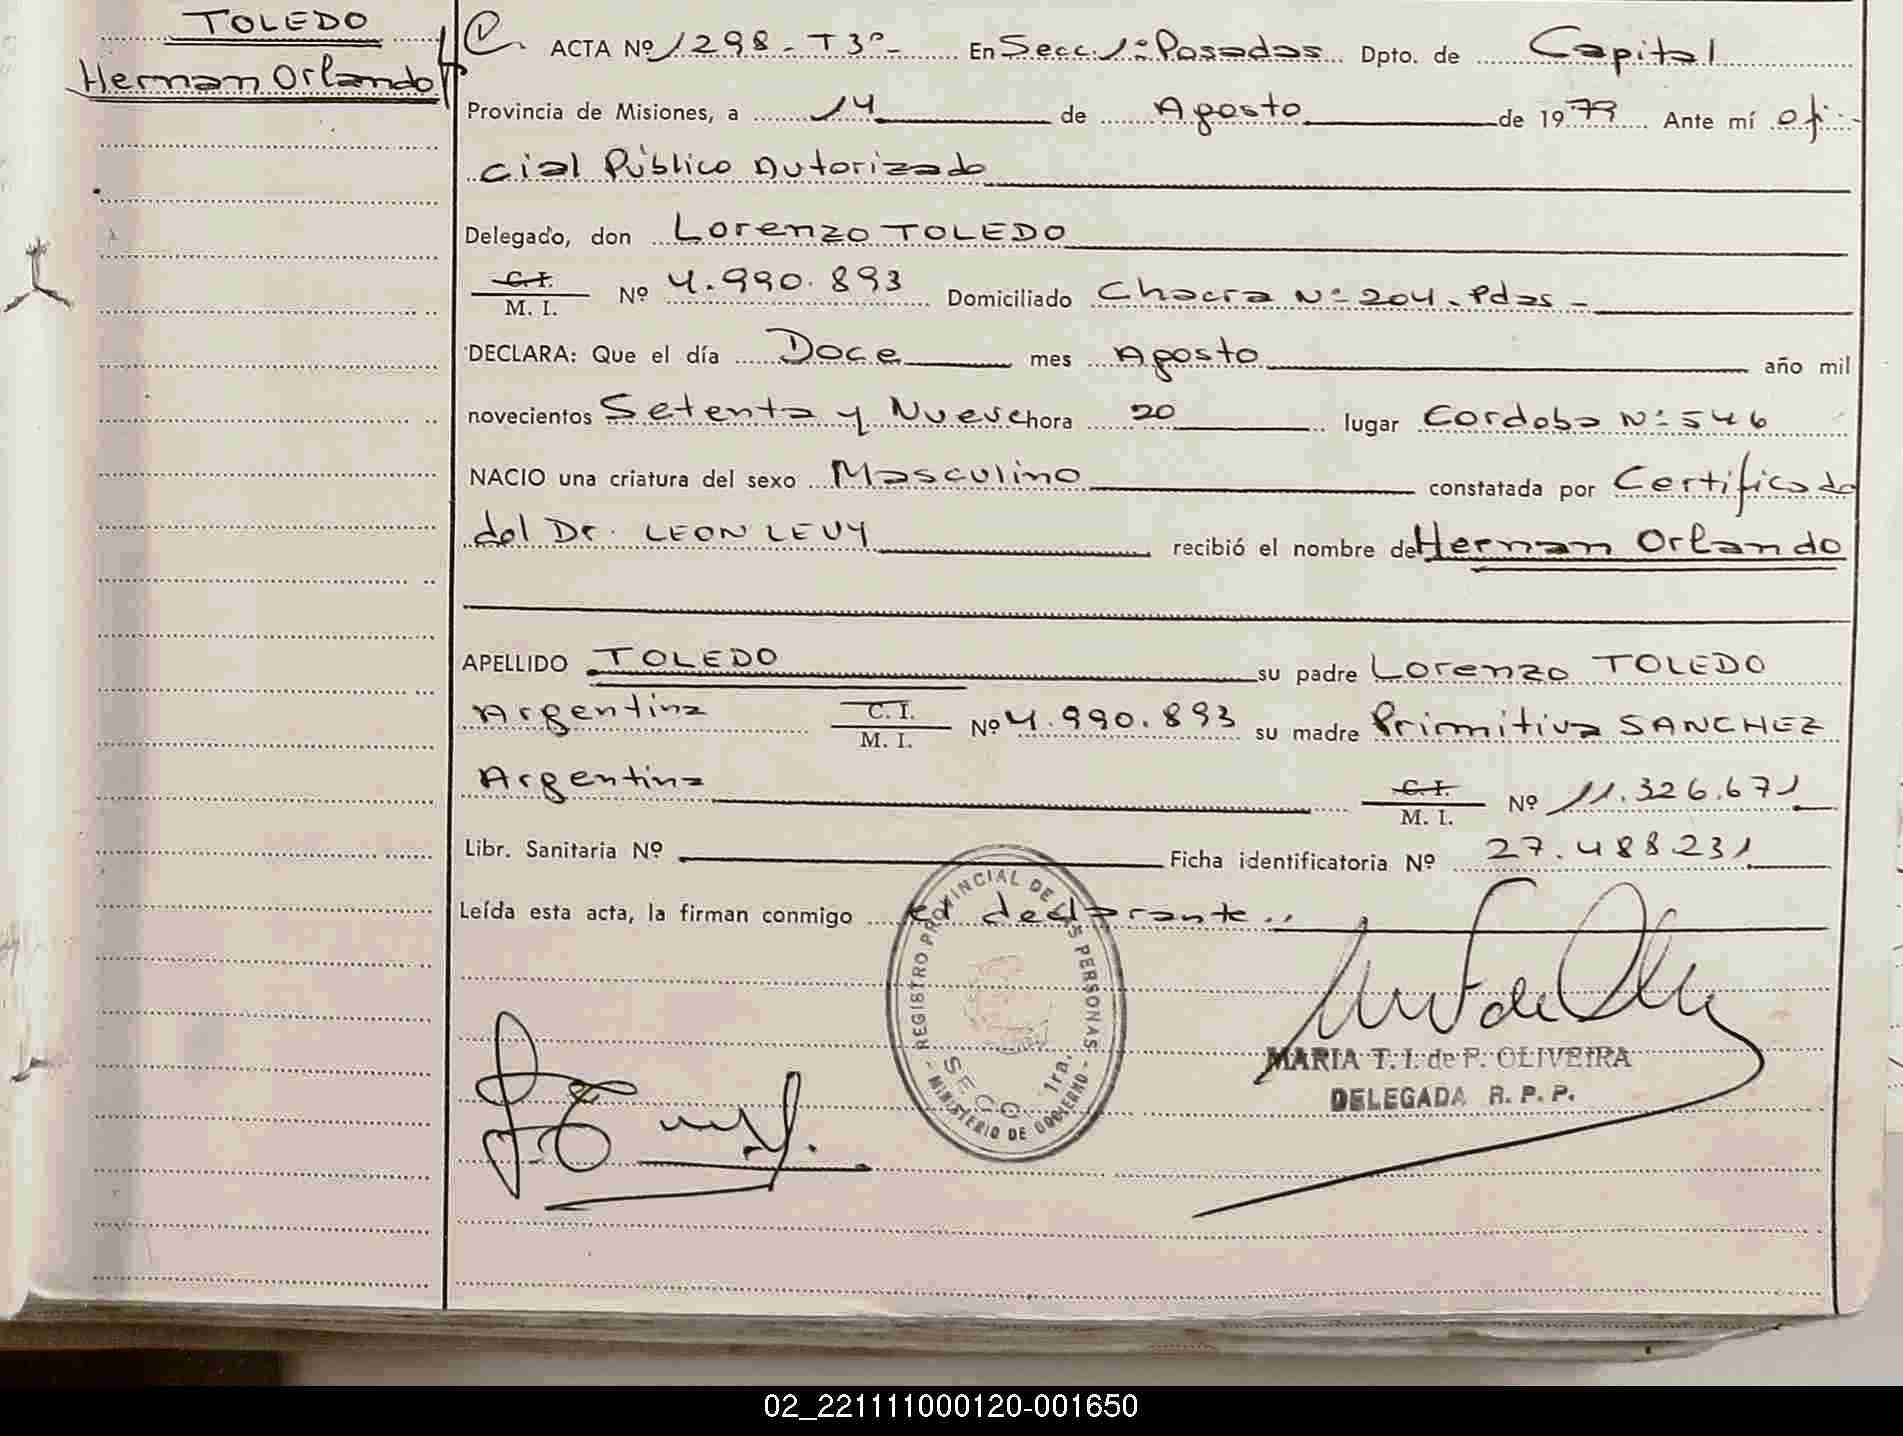 TOLEDO
Hernan Orlando
ACTA Nº 1298 - T3º - En Secc. 1ª Posadas Dpto. de Capital
Provincia de Misiones, a 14 de Agosto de 1979 Ante mí ofi-
cial Público Autorizado
Delegado, don Lorenzo TOLEDO
C.I.
M. I. Nº 4.990.893 Domiciliado Chacra Nº 204. Pdas -
DECLARA: Que el día Doce mes Agosto año mil
novecientos Setenta y Nueve hora 20 lugar Cordoba Nº 546
NACIO una criatura del sexo Masculino constatada por Certificado
del Dr. LEON LEVY recibió el nombre de Hernan Orlando
APELLIDO TOLEDO su padre Lorenzo TOLEDO
Argentina C. I.
M. I. Nº 4.990.893 su madre Primitiva SANCHEZ
Argentina C.I.
M. I. Nº 11.326.671
Libr. Sanitaria Nº Ficha identificatoria Nº 27.488.231
Leída esta acta, la firman conmigo el declarante..
- REGISTRO PROVINCIAL DE LAS PERSONAS -
SECC. 1ra.
MINISTERIO DE GOBIERNO -
MARIA T. I. de P. OLIVEIRA
DELEGADA R. P. P.
02_221111000120-001650